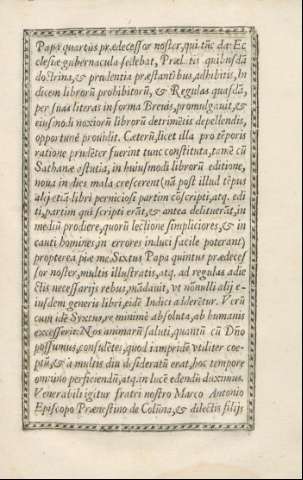 Papa quartus prædecessor noster, qui tũc dũ Ec
clesiæ gubernacula sedebat, Prælatis quibusdã
doctrina, & prudentia præstantibus, adhibitis, In
dicem librorũ prohibitorũ, & Regulas quasdã,
per suas literas in forma Breuis, promulgauit, &
eiusmodi noxiorũ librorũ detrimẽtis depellendis,
opportunè prouidit. Cæterũ, licet illa pro tẽporis
ratione prudẽter fuerint tunc constituta, tamẽ cũ
Sathanæ astutia, in huiusmodi librorũ editione,
noua in dies mala crescerent (nã post illud tẽpus
alij etiã libri perniciosi partim cõscripti, atq. edi
ti, partim qui scripti erãt, & antea delituerãt, in
mediũ prodiere, quorũ lectione simpliciores, & in
cauti homines, in errores induci facile poterant)
propterea piæ me. Sixtus Papa quintus prædeces
sor noster, multis illustratis, atq. ad regulas adie
ctis necessarijs rebus, mãdauit, vt nõnulli alij e-
iusdem generis libri, eidẽ Indici adderẽtur. Verũ
cum idẽ Syxtus, re minimè absoluta, ab humanis
excesserit: Nos animarũ saluti, quantũ cũ Dño
possumus, consulẽtes, quod iampridẽ vtiliter coe-
ptũ, & à multis diu desideratũ erat, hoc tempore
omnino perficiendũ, atq. in lucẽ edendũ duximus.
Venerabili igitur fratri nostro Marco Antonio
Episcopo Prænestino de Colũna, & dilectis filijs